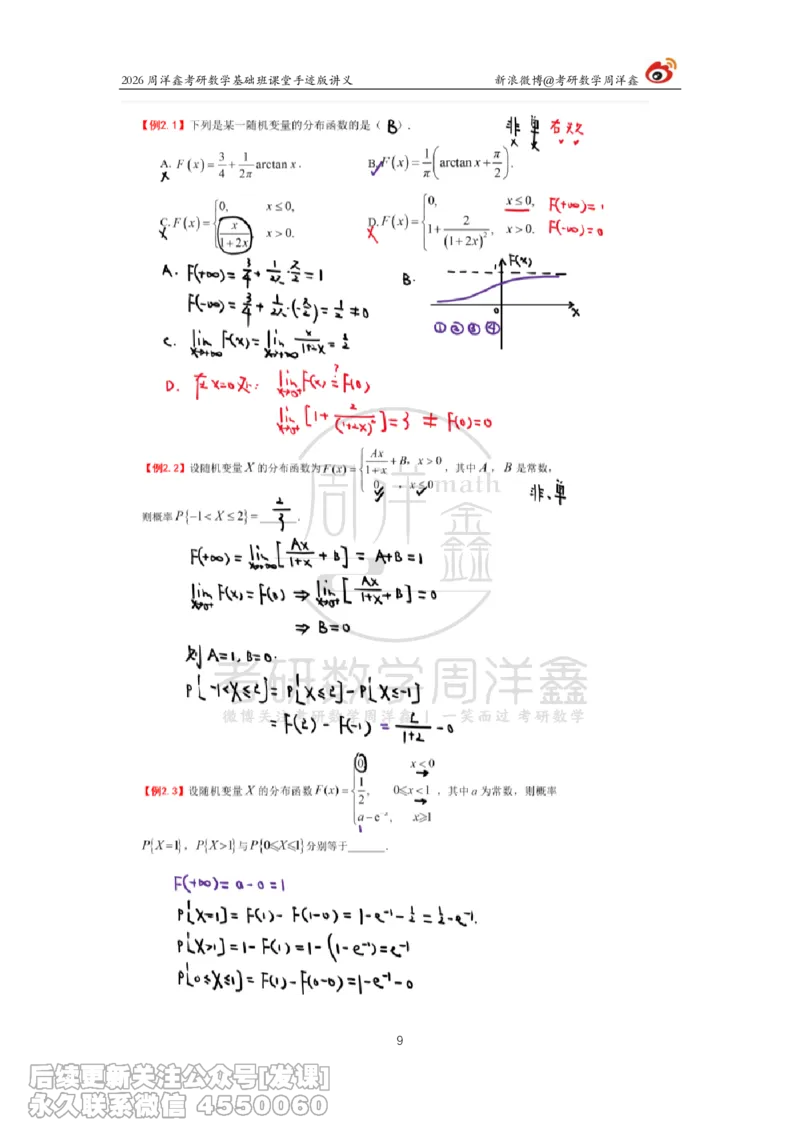 2026 周洋鑫考研数学基础班课堂手迹版讲义 新浪微博@考研数学周洋鑫
【例2.1】下列是某一随机变量的分布函数的是（ B ）. 非 单 右 规
A. F(x)=3/4+1/(2π) arctan x. B. F(x)=1/π(arctan x+π/2).
C. F(x)={0, x≤0, x/(1+2x), x>0. D. F(x)={0, x≤0, 1+2/(1+2x)², x>0. F(+∞)=1 F(-∞)=0
A. F(+∞)=3/4+1/2π·π/2=1 B. F(x) 1 0 x
F(-∞)=3/4+1/2π·(-π/2)=1/2≠0
① ② ③ ④
C. lim x→+∞ F(x)=lim x→+∞ x/(1+2x)=1/2
D. 在x=0处: lim x→0⁺ F(x) =? F(0)
lim x→0⁺ [1+2/(1+2x)²]=3 ≠ F(0)=0
【例2.2】设随机变量 X 的分布函数为 F(x)={Ax/(1+x)+B, x>0 0, x≤0，其中 A，B 是常数，
非、单
则概率 P{-1<X≤2}= 2/3 .
F(+∞)=lim x→+∞ [Ax/(1+x)+B]=A+B=1
lim x→0⁺ F(x)=F(0) ⇒ lim x→0⁺ [Ax/(1+x)+B]=0
⇒ B=0
则 A=1, B=0.
P{-1<X≤2}=P{X≤2}-P{X≤-1}
=F(2)-F(-1)=2/(1+2)-0
【例2.3】设随机变量 X 的分布函数 F(x)={0, x<0 1/2, 0⩽x<1 a-e⁻ˣ, x⩾1，其中 a 为常数，则概率
1
P{X=1}，P{X>1}与P{0⩽X⩽1}分别等于______.
F(+∞)=a-0=1
P{X=1}=F(1)-F(1-0)=1-e⁻¹-1/2=1/2-e⁻¹.
P{X>1}=1-F(1)=1-(1-e⁻¹)=e⁻¹
P{0≤X≤1}=F(1)-F(0-0)=1-e⁻¹-0
周洋鑫
math
考研数学周洋鑫
微博关注考研数学周洋鑫 | 一笑而过 考研数学
9
后续更新关注公众号[发课]
永久联系微信 4550060